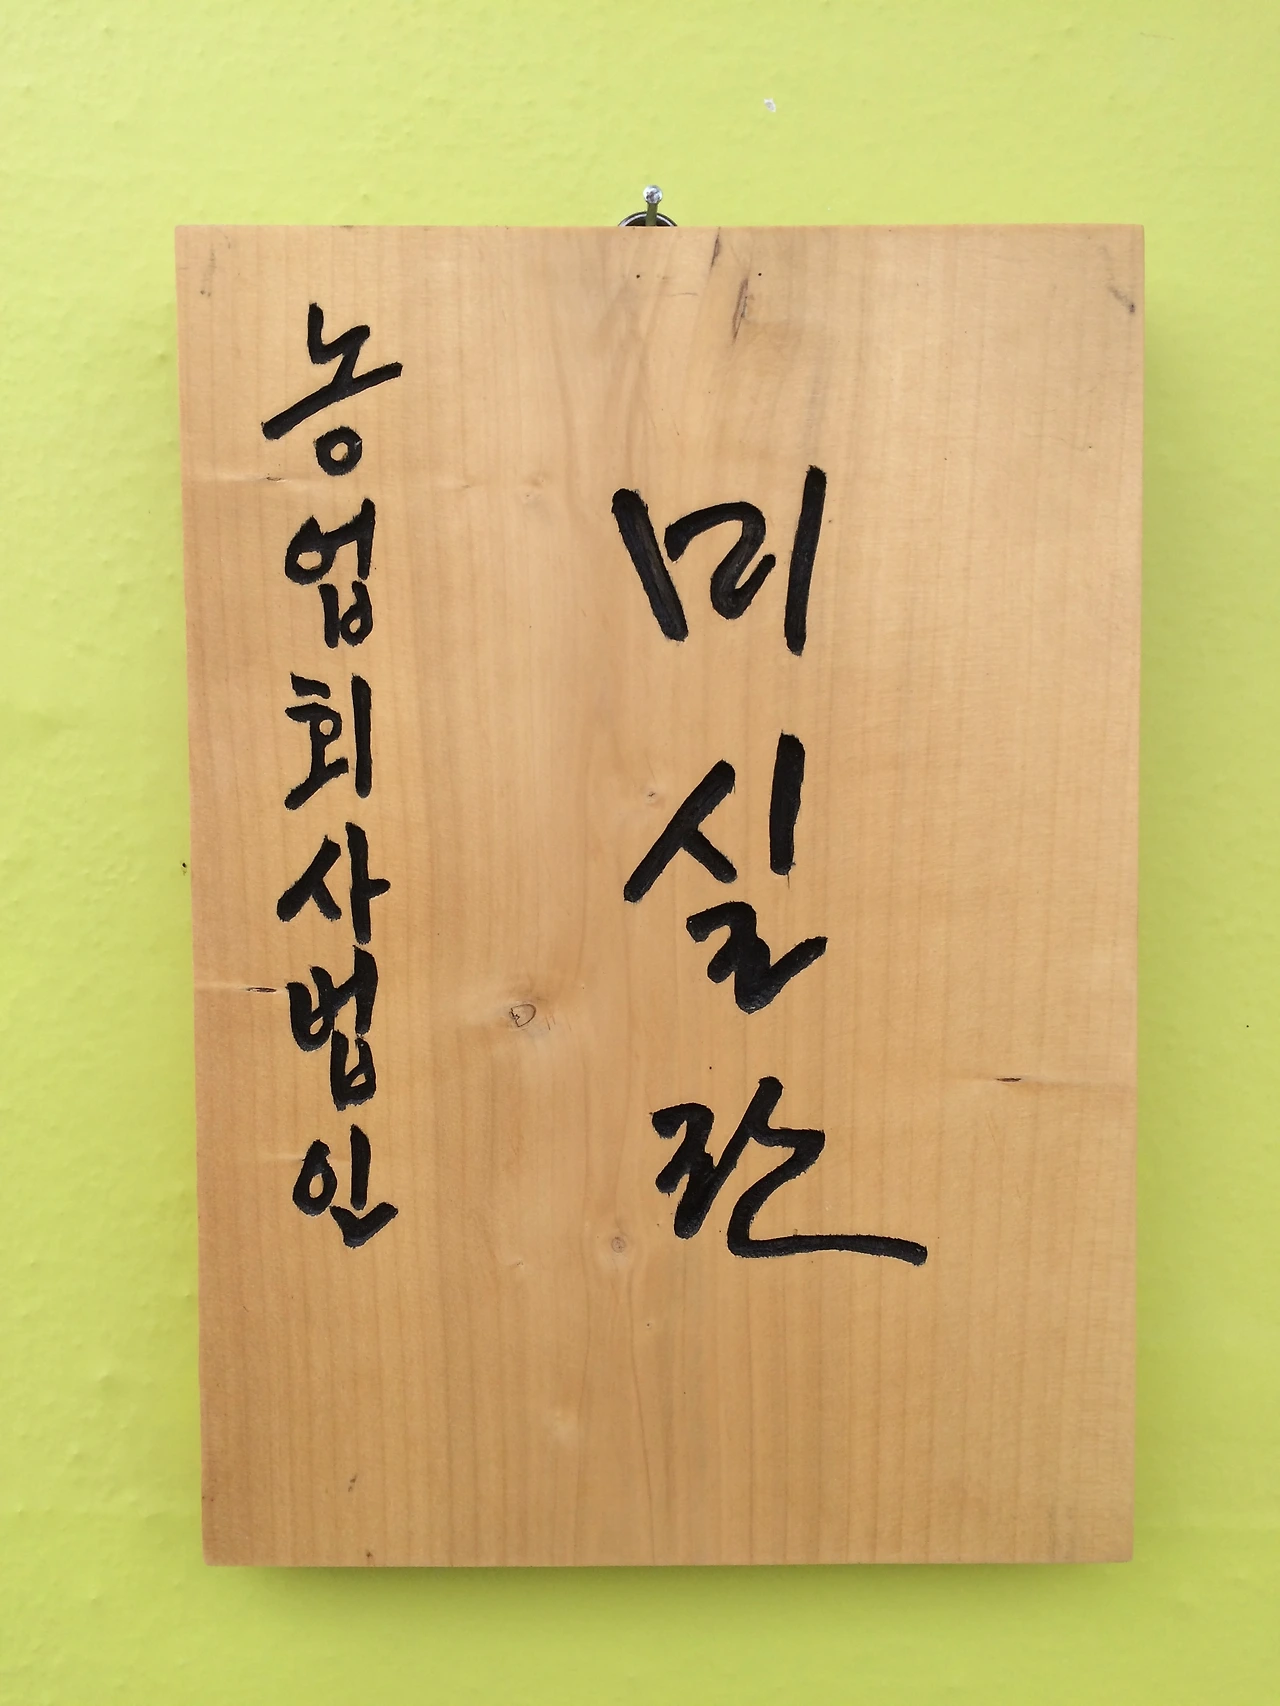 농업회사법인
미실란